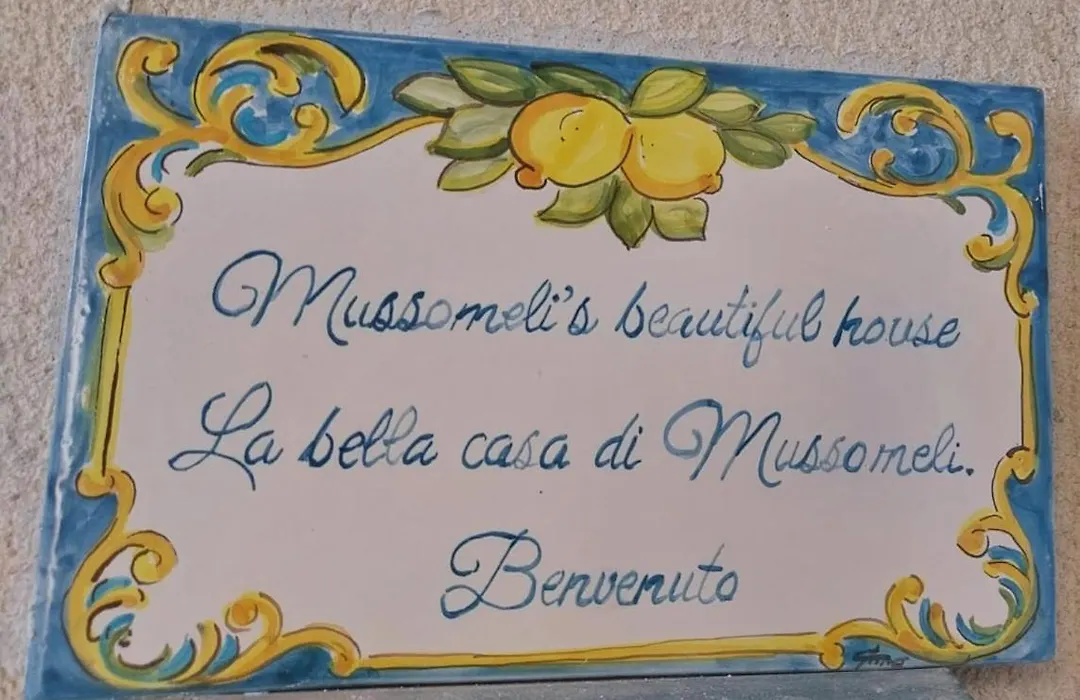 Mussomeli's beautiful house
La bella casa di Mussomeli.
Benvenuto